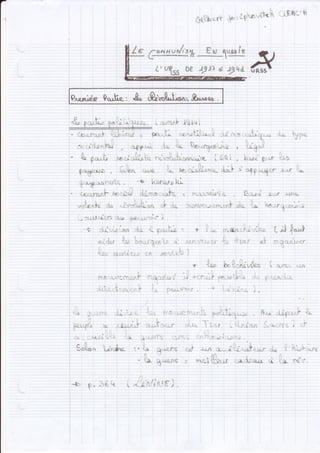 LE COMMUNISME EN RUSSIE
L'URSS DE 1917 à 1941
URSS
Première Partie : La Révolution Russe
Les partis politiques (avant 1914)
- Courant libéral : parti constitutionnel démocratique de type
occidental, appui de la Bourgeoisie, légal
- le parti socialiste révolutionnaire (SR), basé par les
paysans, le socialisme doit s'appuyer sur la
paysannerie.
- courant social démocrate, marxiste. Basé sur une
volonté de révolution et de de la bourgeoisie
(ouvriers au pouvoir)
division de 2 partis : + les menchéviks (il faut
aider les bourgeois à renverser le tsar et organiser
les ouvriers en)
+ les bolchéviks (avec un
mouvement organisé il serait possible de prendre
directement le pouvoir. → Lénine).
La guerre divise les mouvements politiques. Au départ le
peuple se réunit autour du Tsar (Union Sacrée) et
la guerre
Selon Lénine : - la guerre est un accélérateur de l'Histoire
- la guerre = meilleur cadeau à la rév.
→ p. 364 (LENINE).